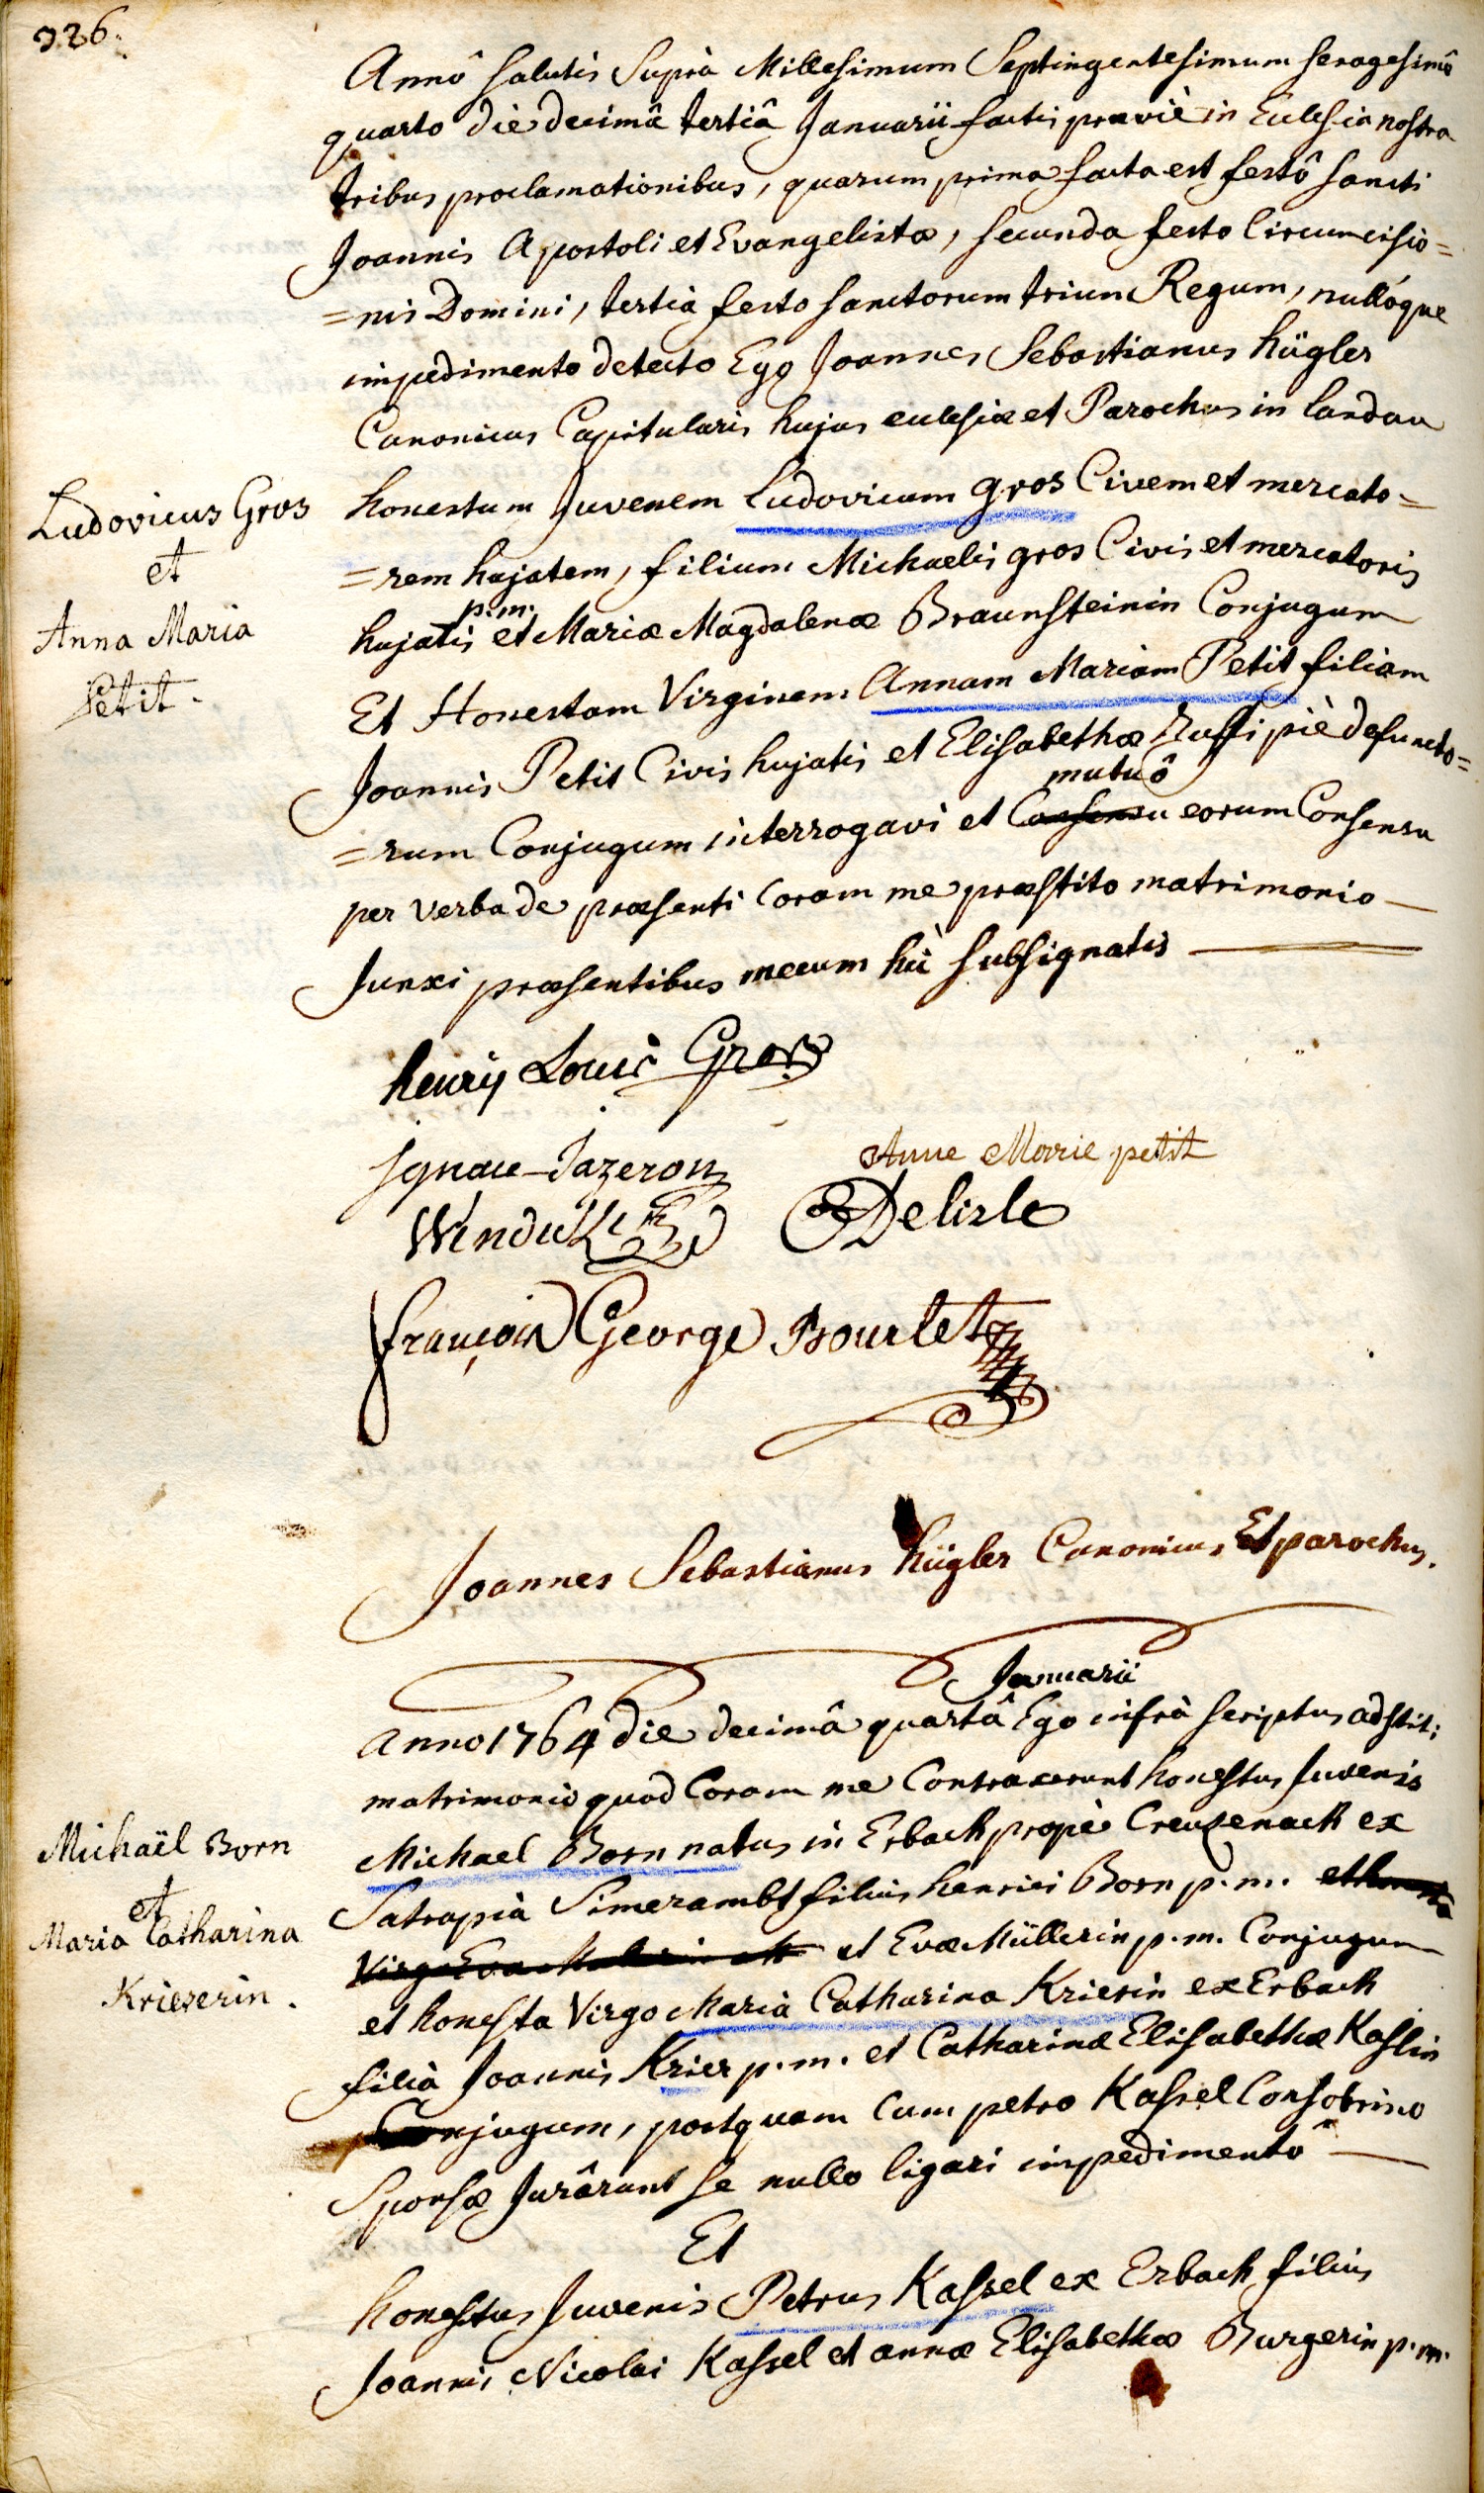 326.
Annô Salutis Suprà Millesimum Septingentesimum sexagesimô
quarto die decimâ tertiâ Januarii factis praeviè in Ecclesia nostra
tribus proclamationibus, quarum prima facta est festô Sancti
Joannis Apostoli et Evangelistæ, secunda festo Circumcisio=
=nis Domini, tertia festo Sanctorum trium Regum, nullóque
impedimento detecto Ego Joannes Sebastianus Hügler
Canonicus Capitularis hujus ecclesiæ et Parochus in Landau
Ludovicus Gros
et
Anna Maria
Petit.
honestum Juvenem Ludovicum gros Civem et mercato=
=rem hujatem, filium Michaelis gros Civis et mercatoris
hujatis p.m. et Mariæ Magdalenæ Braunsteinin Conjugum
Et Honestam Virginem Annam Mariam Petit filiam
Joannis Petit Civis hujatis et Elisabethæ piè defuncto=
=rum Conjugum interrogavi et Consensu mutuô eorum Consensu
per verba de præsenti Coram me præstito matrimonio
Junxi præsentibus mecum hîc subsignatis
henry Louis Gros
Ignace Jazeron
Anne Marie petit
Delisle
françois George Bourlet
Joannes Sebastianus Hügler Canonicus Et parochus.
Anno 1764 die decimâ quartâ Januarii Ego infrà scriptus adstiti
matrimonio quod Coram me Contraxerunt honestus Juvenis
Michaël Born
et
Maria Catharina
Krieserin.
Michael Born natus in Erbach propè Creuzenach ex
Satrapia Simerambt filius henrici Born p.m. et honesta
Virgo Eva et Evæ Müllerin p.m. Conjugum
et honesta Virgo Maria Catharina Krierin ex Erbach
filia Joannis Krier p.m. et Catharinæ Elisabethæ Kaslin
Conjugum, postquam Cum petro Kassel Consobrino
Sponsæ Jurârunt se nullo ligari impedimentô
Et
honestus Juvenis Petrus Kassel ex Erbach filius
Joannis Nicolai Kassel et annæ Elisabethæ Burgerin p.m.